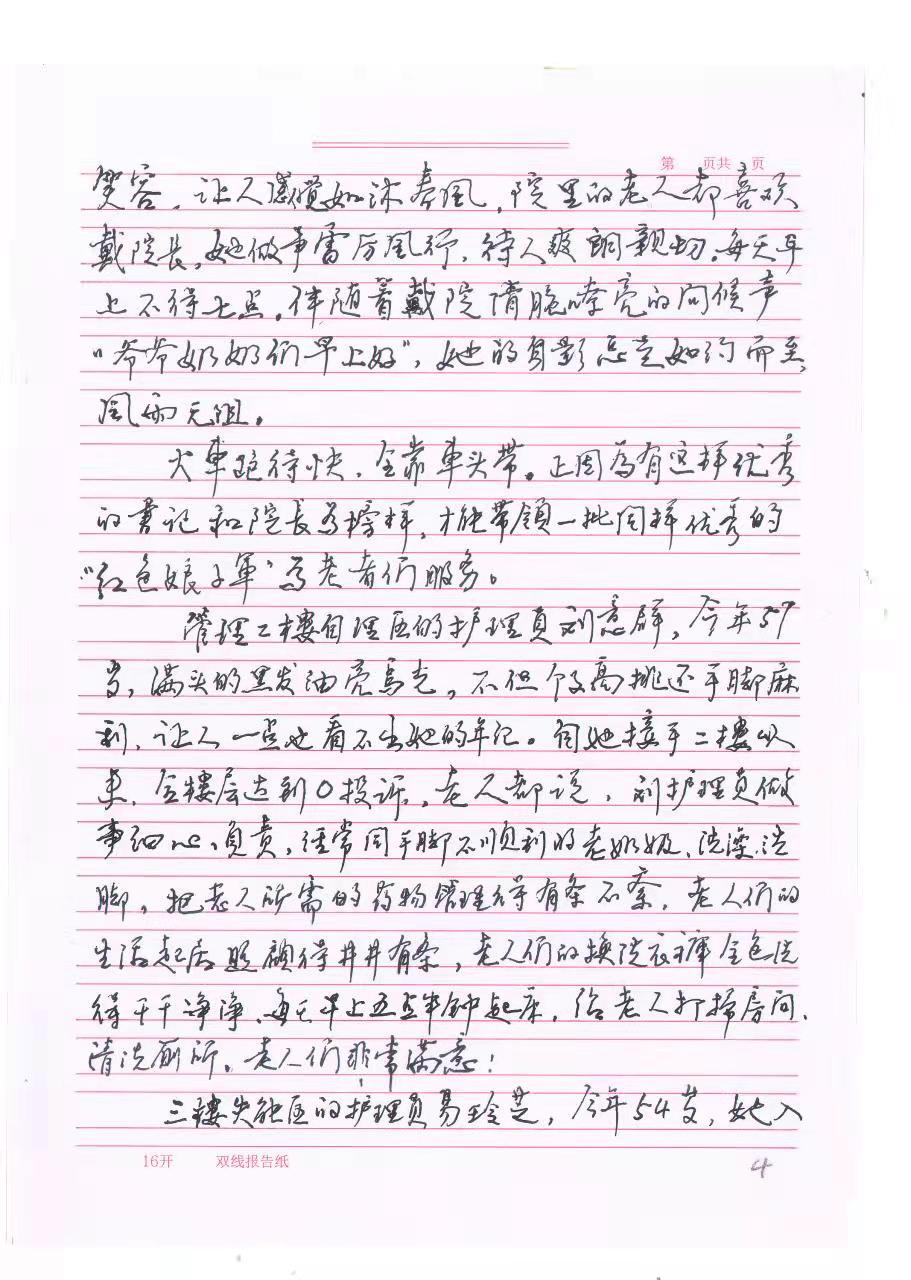 第 页共 页
笑容，让人感觉如沐春風，院里的老人都喜欢
戴院長。她做事雷厉風行，待人爽朗親切。每天早
上不到七点，伴随着戴院清脆嘹亮的问候声
“爷爷奶奶们早上好”，她的身影总是如约而至，
風雨无阻。
火車跑得快，全靠車头带。正因為有这样优秀
的書记和院長為榜样，才能带領一批同样优秀的
“红色娘子軍”為老者们服务。
管理二楼自理区的护理員刘意群，今年57
岁，满头的黑发油亮烏光，不但个子高挑还手脚麻
利，让人一点也看不出她的年记。自她接手二楼以
来，全楼层达到0投诉。老人都说，刘护理員做
事细心、負責，经常同手脚不顺利的老奶奶、洗澡、洗
脚，把老人所需的药物管理得有条不紊，老人们的
生活起居照顧得井井有条，老人们的换洗衣裤全包洗
得干干净净，每天早上五点半钟起床，给老人打掃房间、
清洗厕所，老人们非常满意！
三楼失能区的护理員易玲芝，今年54岁，她入
16开 双线报告纸
4